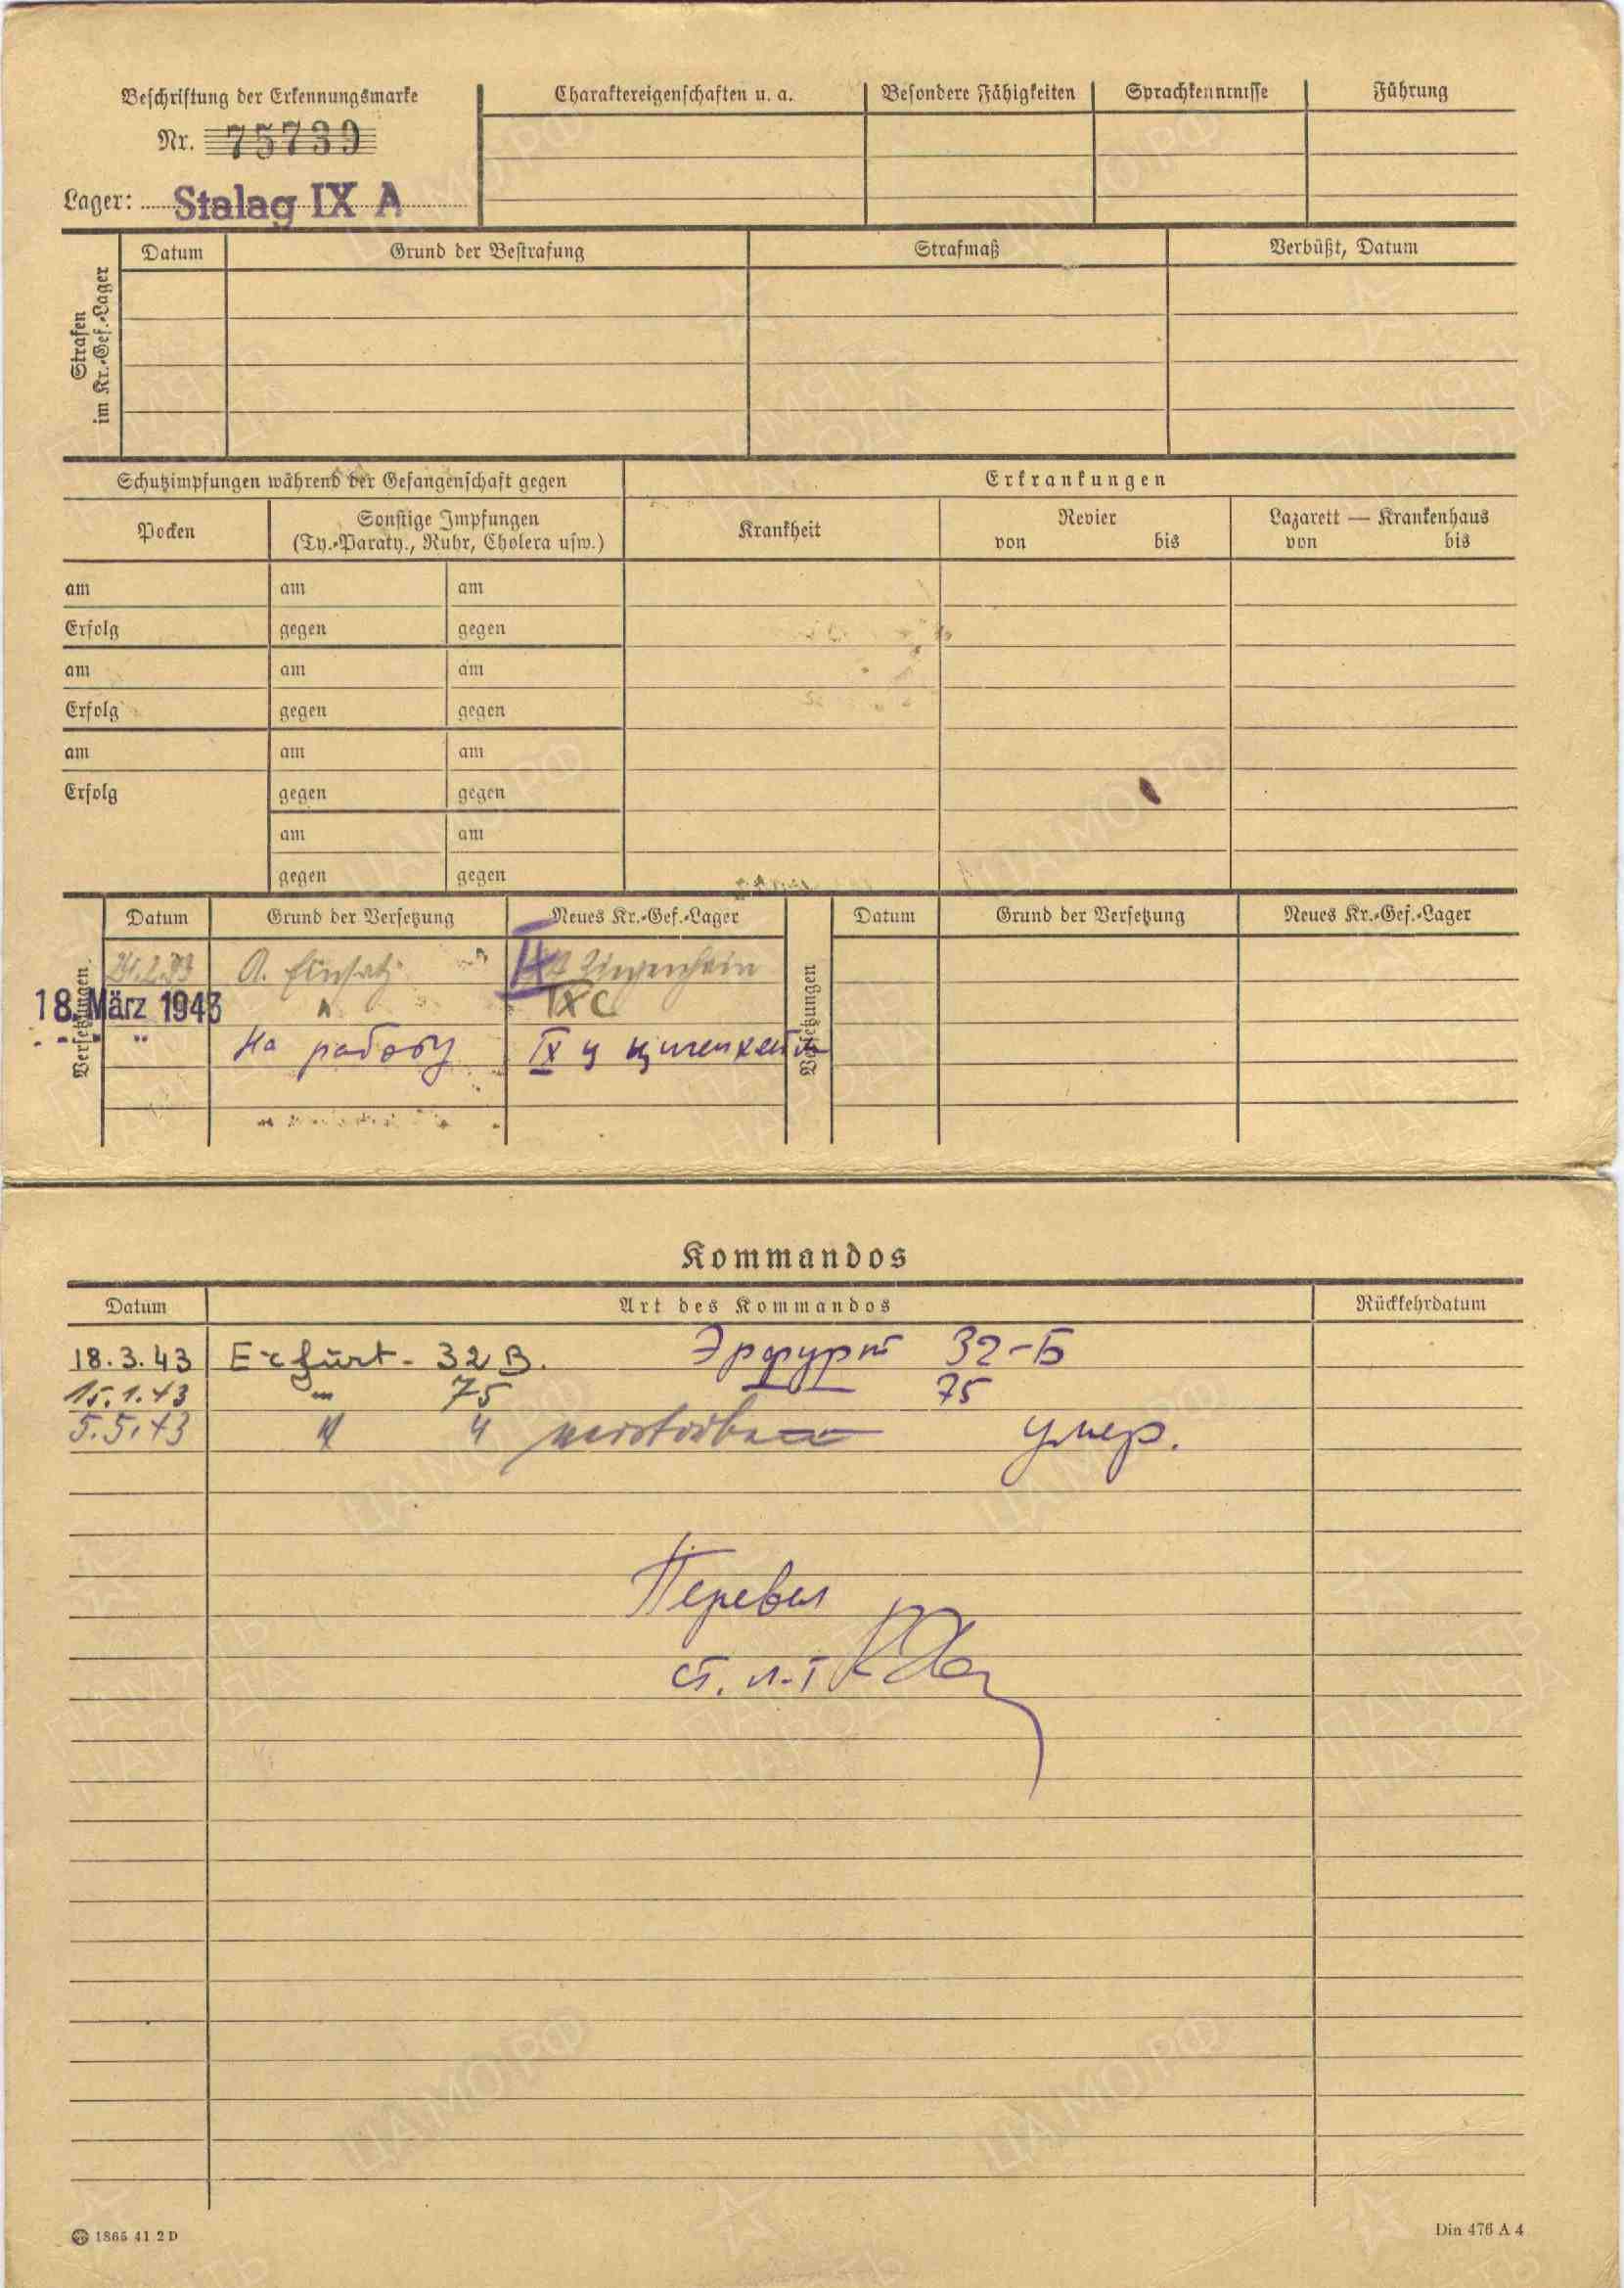 Beschriftung der Erkennungsmarke
Nr. 75739
Lager: Stalag IX A
Charaktereigenschaften u. a.
Besondere Fähigkeiten
Sprachkenntnisse
Führung
Strafen
im Kr.-Gef.-Lager
Datum
Grund der Bestrafung
Strafmaß
Verbüßt, Datum
Schutzimpfungen während der Gefangenschaft gegen
Erkrankungen
Pocken
Sonstige Impfungen
(Ty.-Paraty., Ruhr, Cholera usw.)
Krankheit
Revier
von bis
Lazarett — Krankenhaus
von bis
am am am
Erfolg gegen gegen
am am am
Erfolg gegen gegen
am am am
Erfolg gegen gegen
am am
gegen gegen
Versetzungen
Datum Grund der Versetzung Neues Kr.-Gef.-Lager
Versetzungen
Datum Grund der Versetzung Neues Kr.-Gef.-Lager
A. Einsatz Ziegenhain
18. März 1943 IX C
На работу IX ц цигенхайн
Kommandos
Datum Art des Kommandos Rückkehrdatum
18.3.43 Erfurt - 32 B. Эрфурт 32-Б
15.1.43 " 75 75
5.5.43 " умер.
Перевел
ст. л-т
1865 41 2 D
Din 476 A 4
ЦАМО.РФ
ПАМЯТЬ
НАРОДА